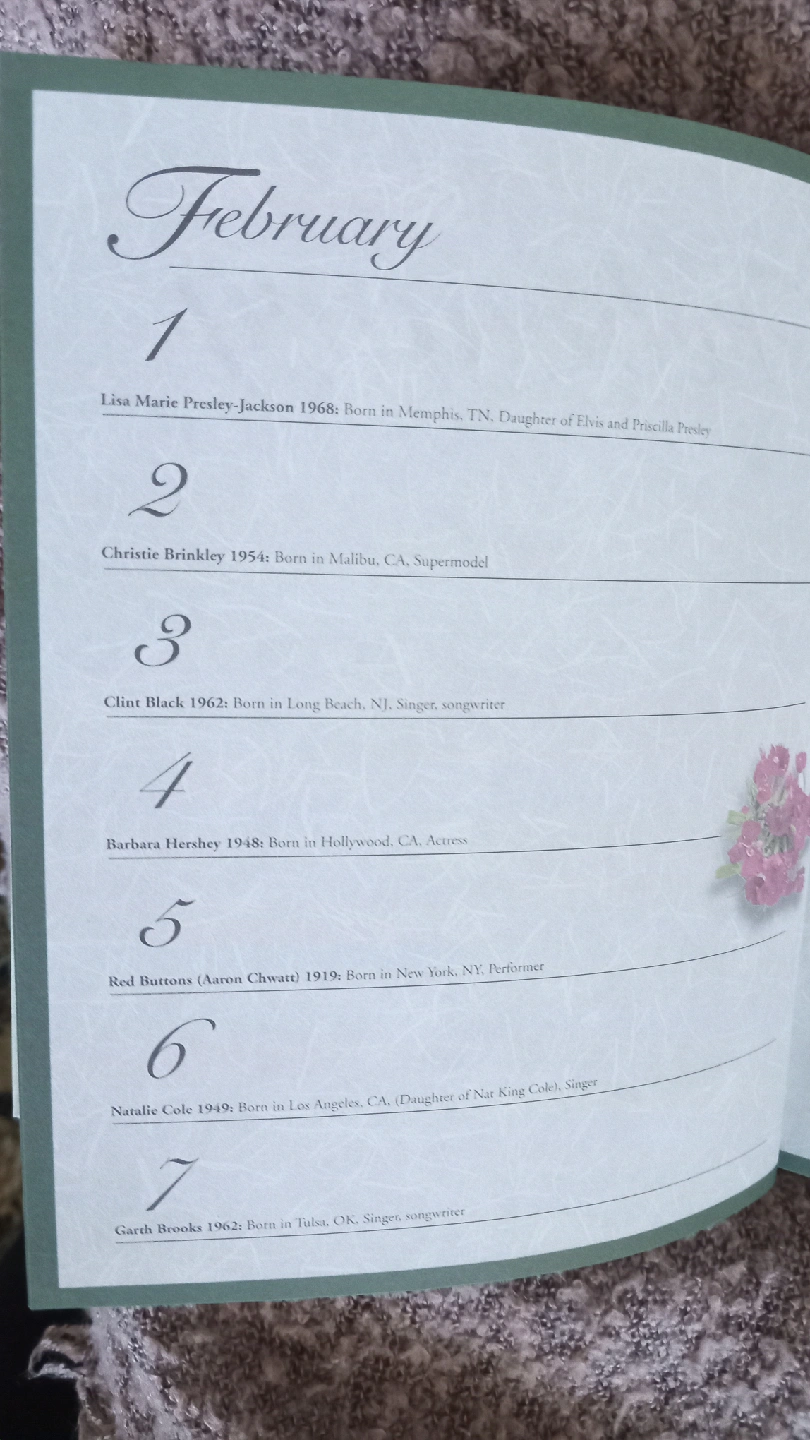 February
1
Lisa Marie Presley-Jackson 1968: Born in Memphis, TN, Daughter of Elvis and Priscilla Presley
2
Christie Brinkley 1954: Born in Malibu, CA, Supermodel
3
Clint Black 1962: Born in Long Beach, NJ, Singer, songwriter
4
Barbara Hershey 1948: Born in Hollywood, CA, Actress
5
Red Buttons (Aaron Chwatt) 1919: Born in New York, NY, Performer
6
Natalie Cole 1949: Born in Los Angeles, CA, (Daughter of Nat King Cole), Singer
7
Garth Brooks 1962: Born in Tulsa, OK, Singer, songwriter